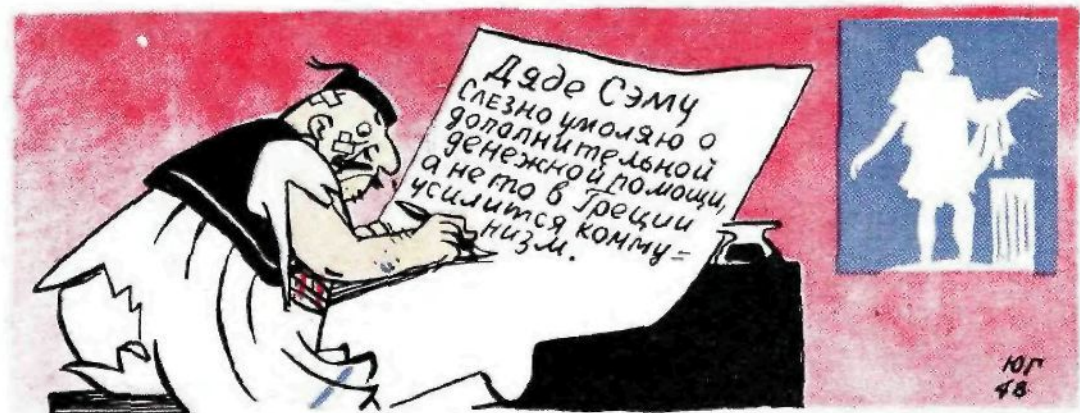 Дяде Сэму
Слезно умоляю о
дополнительной
денежной помощи,
а не то в Греции
усилится комму=
низм.
ЮГ
48